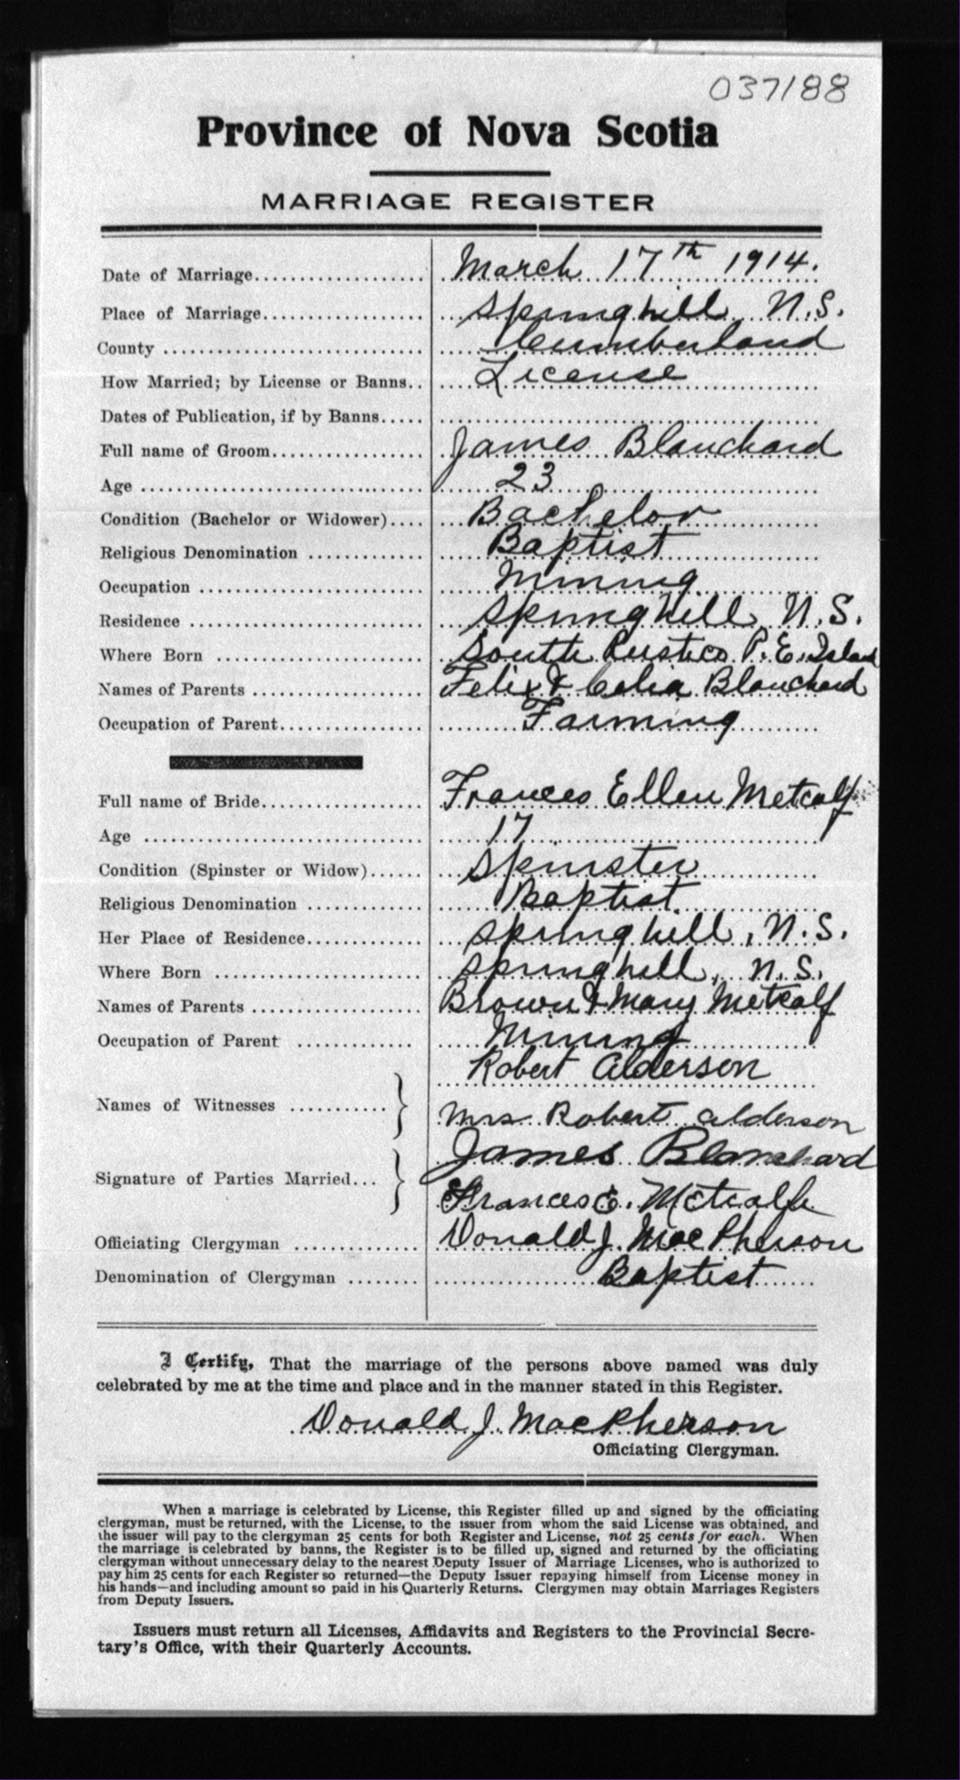 037188
Province of Nova Scotia
MARRIAGE REGISTER
Date of Marriage.................... March 17th 1914.
Place of Marriage................... Springhill, N.S.
County ............................... Cumberland
How Married; by License or Banns.. License
Dates of Publication, if by Banns.....
Full name of Groom.................. James Blanchard
Age .................................. 23
Condition (Bachelor or Widower).... Bachelor
Religious Denomination .............. Baptist
Occupation ........................... Mining
Residence ............................ Springhill, N.S.
Where Born ......................... South Rustico P.E. Island
Names of Parents .................... Felix & Celia Blanchard
Occupation of Parent................. Farming
Full name of Bride................... Frances Ellen Metcalf
Age .................................. 17
Condition (Spinster or Widow)...... Spinster
Religious Denomination .............. Baptist
Her Place of Residence.............. Springhill, N.S.
Where Born ......................... Springhill, N.S.
Names of Parents .................... Brown & Mary Metcalf
Occupation of Parent ............... Mining
Robert Alderson
Names of Witnesses ...........
Mrs. Robert Alderson
James Blanchard
Signature of Parties Married...
Frances E. Metcalfe
Officiating Clergyman ............... Donald J. MacPherson
Denomination of Clergyman ........ Baptist
I Certify, That the marriage of the persons above named was duly
celebrated by me at the time and place and in the manner stated in this Register.
Donald J. MacPherson
Officiating Clergyman.
When a marriage is celebrated by License, this Register filled up and signed by the officiating
clergyman, must be returned, with the License, to the issuer from whom the said License was obtained, and
the issuer will pay to the clergyman 25 cents for both Register and License, not 25 cents for each. When
the marriage is celebrated by banns, the Register is to be filled up, signed and returned by the officiating
clergyman without unnecessary delay to the nearest Deputy Issuer of Marriage Licenses, who is authorized to
pay him 25 cents for each Register so returned—the Deputy Issuer repaying himself from License money in
his hands—and including amount so paid in his Quarterly Returns. Clergymen may obtain Marriages Registers
from Deputy Issuers.
Issuers must return all Licenses, Affidavits and Registers to the Provincial Secre-
tary's Office, with their Quarterly Accounts.